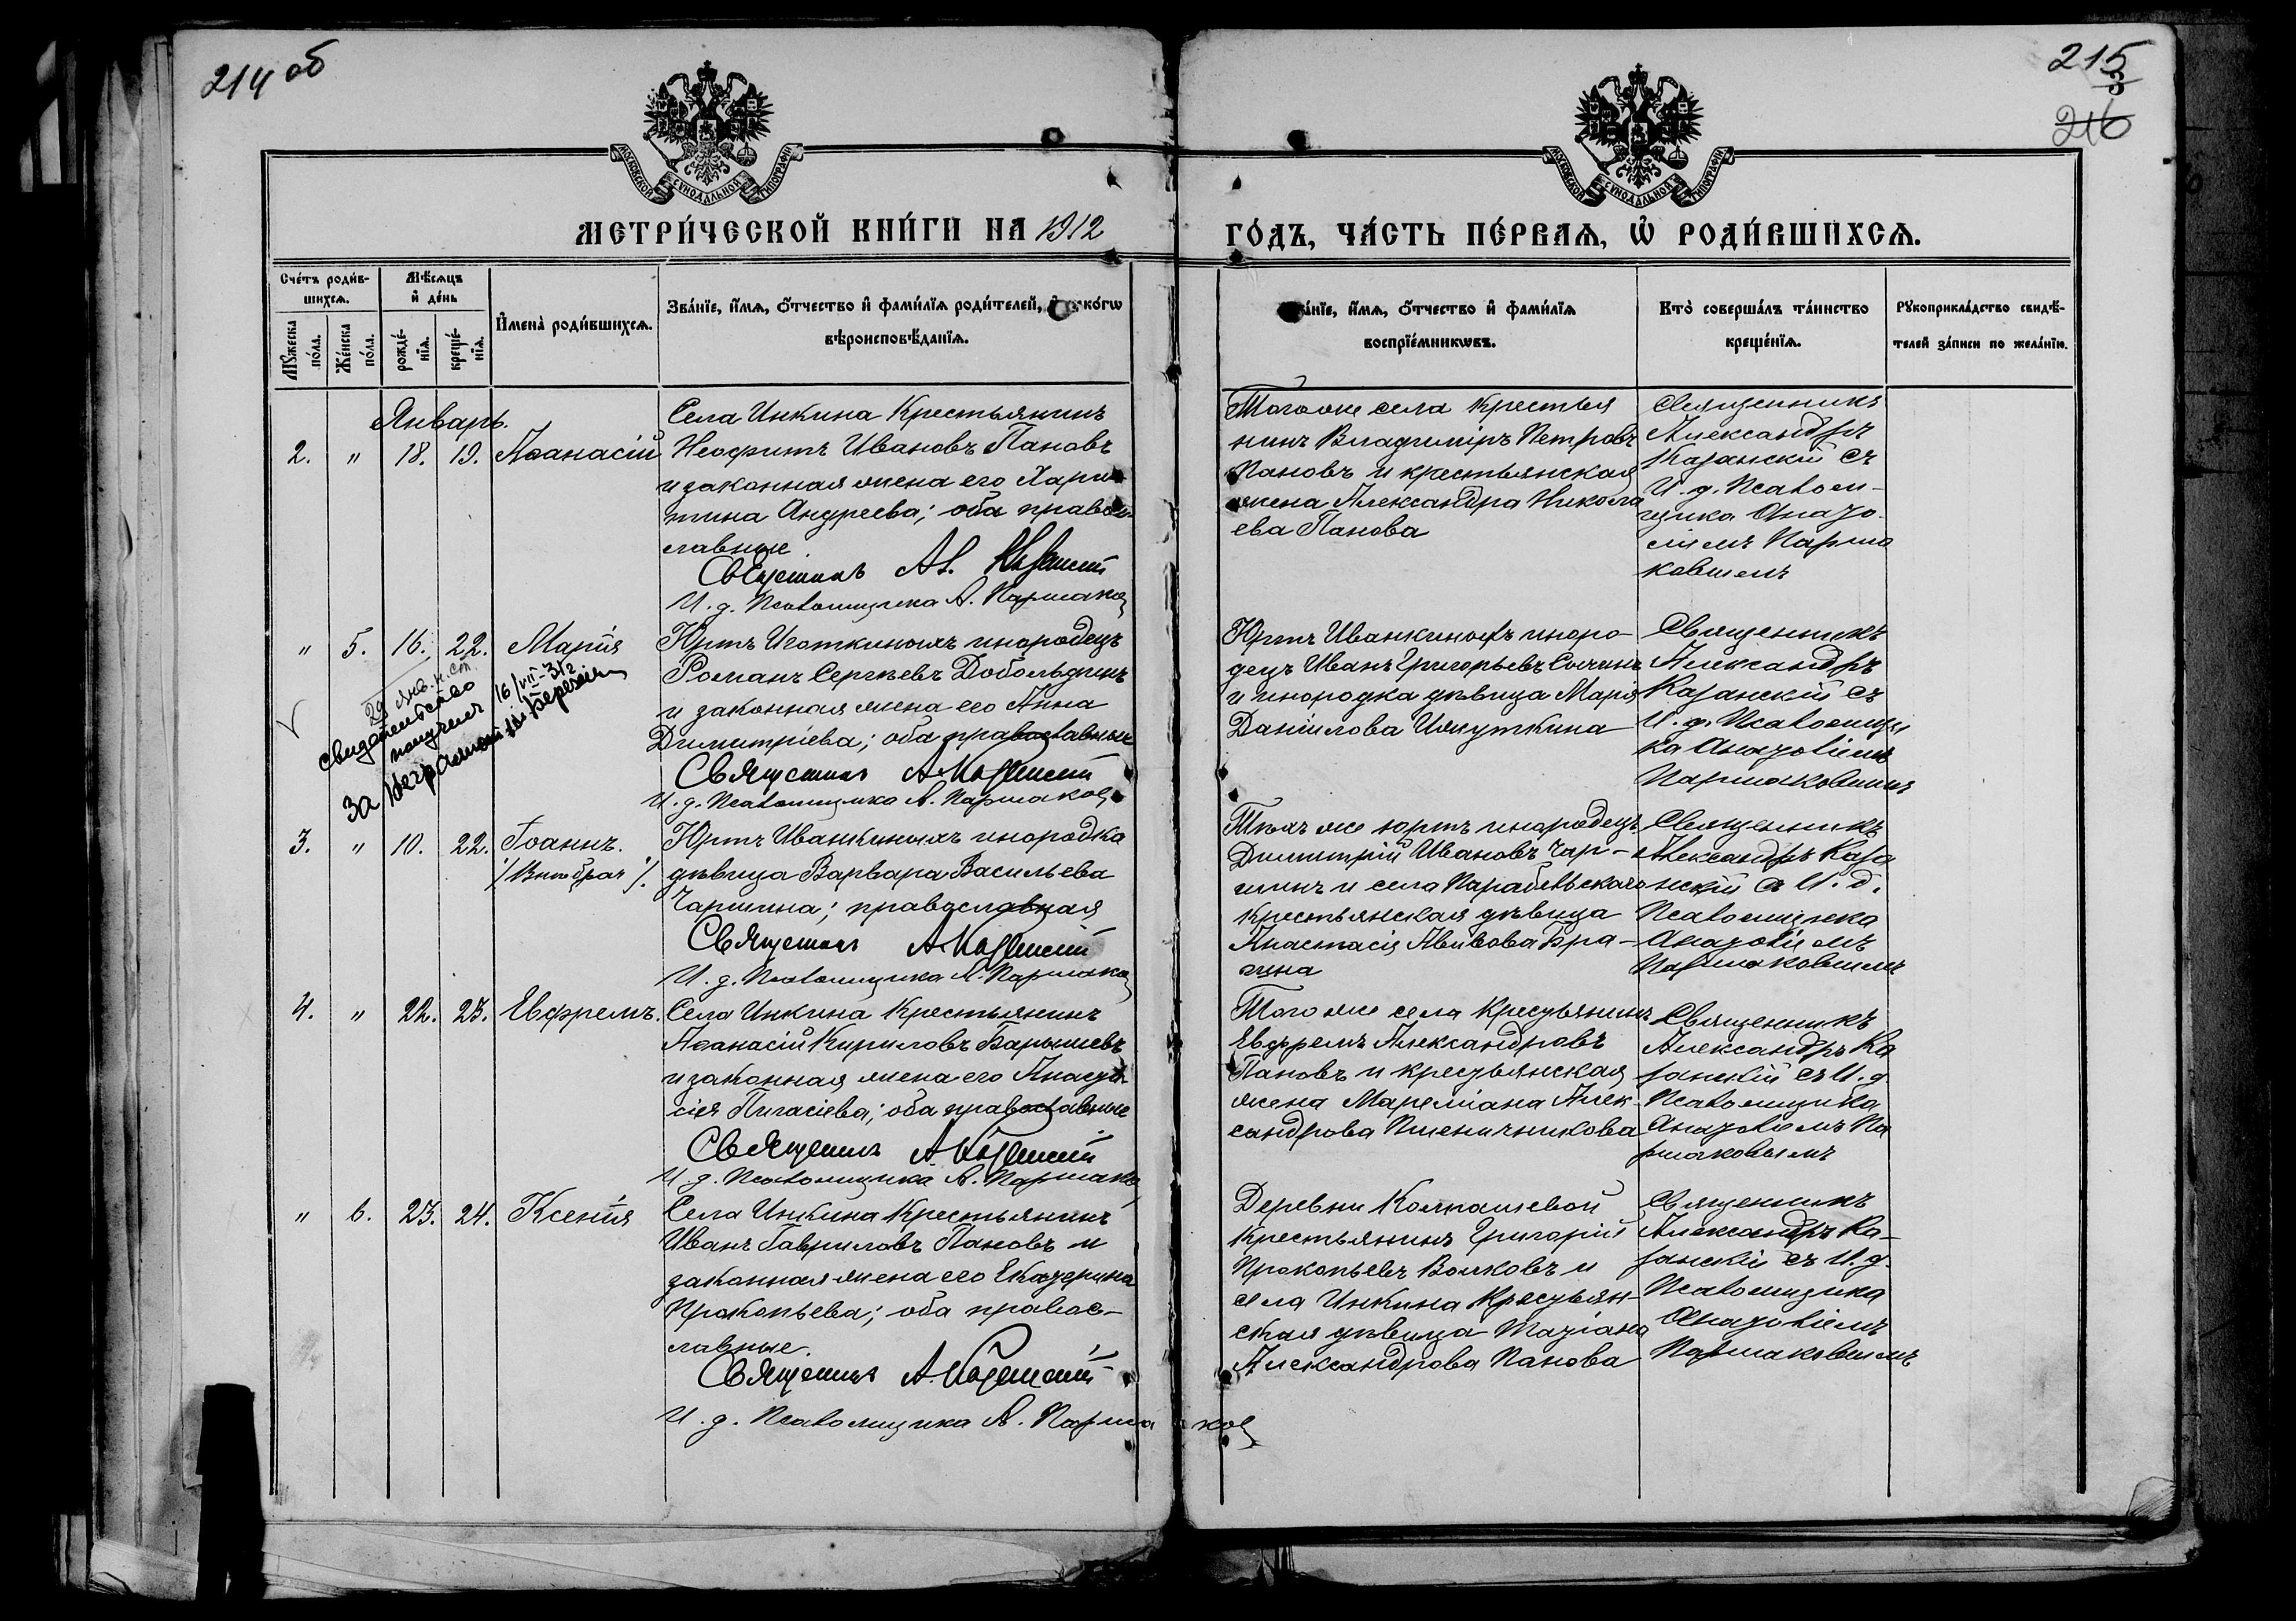 214 об
215
3
216
МОСКОВСКОЙ СѴНОДАЛЬНОЙ ТИПОГРАФІИ
МОСКОВСКОЙ СѴНОДАЛЬНОЙ ТИПОГРАФІИ
МЕТРИ́ЧЕСКОЙ КНИ́ГИ НА 1912
ГО́ДЪ, ЧА́СТЬ ПЕ́РВАѦ, Ѡ҆ РОДИ́ВШИХСѦ.
Сче́тъ роди́в-
шихсѧ.
Мꙋ́жеска по́ла.
Же́нска по́ла.
Мѣ́сѧцъ
и҆ де́нь
рожде́-нїѧ.
креще́-нїѧ.
И҆мена̀ роди́вшихсѧ.
Зва́нїе, и҆́мѧ, ѻ҆́тчество и҆ фами́лїѧ роди́телей, и҆ како́гѡ
вѣроисповѣ́данїѧ.
Зва́нїе, и҆́мѧ, ѻ҆́тчество и҆ фами́лїѧ
воспрїе́мникѡвъ.
Кто̀ соверша́лъ та́инство
креще́нїѧ.
Рꙋкоприкла́дство свидѣ́-
телей за́писи по жела́нїю.
Январь.
2. " 18. 19. Аѳанасій
Села Инкина Крестьянинъ
Неофитъ Ивановъ Пановъ
и законная жена его Хари-
тина Андреева; оба право-
славные.
Священникъ Ал. Казанскій
И. д. Псаломщика А. Паршаков
Того же села крестья
нинъ Владиміръ Петровъ
Пановъ и крестьянская
жена Александра Никола
ева Панова
Священникъ
Александръ
Казанскій съ
И. д. Псалом-
щика Анато-
ліемъ Парша
ковымъ
" 5. 16. 22. Марія
Юртъ Иготкиныхъ инородецъ
Романъ Сергѣевъ Добольджинъ
и законная жена его Анна
Димитріева; оба православные
Священникъ А. Казанскій
И. д. Псаломщика А. Паршаков
29 янв. н. ст
свидетельство
получил 16/VII-31г
За неграмотн
Юртъ Иванкиныхъ иноро-
децъ Иванъ Григорьевъ
и инородка дѣвица Марія
Даніилова
Священникъ
Александръ
Казанскій съ
И. д. Псаломщи
ка Анатоліемъ
Паршаковымъ
3. " 10. 22. Іоаннъ.
/Внѣбрач/.
Юртъ Иванкиныхъ инородка
дѣвица Варвара Васильева
Чаршина; православная
Священникъ А. Казанскій
И. д. Псаломщика А. Паршаков
Тѣхъ же юртъ инородецъ
Димитрій Ивановъ Чар-
шинъ и села Парабельскаго
крестьянская дѣвица
Анастасія Авивова Бра-
гина
Священникъ
Александръ Каза
нскій съ И. д.
Псаломщика
Анатоліемъ
Паршаковымъ
4. " 22. 23. Евфремъ.
Села Инкина Крестьянинъ
Аѳанасій Кириловъ Барышевъ
и законная жена его Анаста-
сія Пигасіева; оба православные
Священникъ А. Казанскій
И. д. Псаломщика А. Паршаков
Того же села Крестьянинъ
Евфремъ Александровъ
Пановъ и крестьянская
жена Мареміана Алек-
сандрова Пшеничникова
Священникъ
Александръ Ка
занскій съ И. д.
Псаломщика
Анатоліемъ Па
ршаковымъ
" 6. 23. 24. Ксенія
Села Инкина Крестьянинъ
Иванъ Гавриловъ Пановъ и
законная жена его Екатерина
Прокопьева; оба правос-
лавные.
Священникъ А. Казанскій
И. д. Псаломщика А. Паршаков
Деревни Колпашевой
Крестьянинъ Григорій
Прокопьевъ Волковъ и
села Инкина Крестьян-
ская дѣвица Татіана
Александрова Панова
Священникъ
Александръ Ка-
занскій съ И. д.
Псаломщика
Анатоліемъ
Паршаковымъ